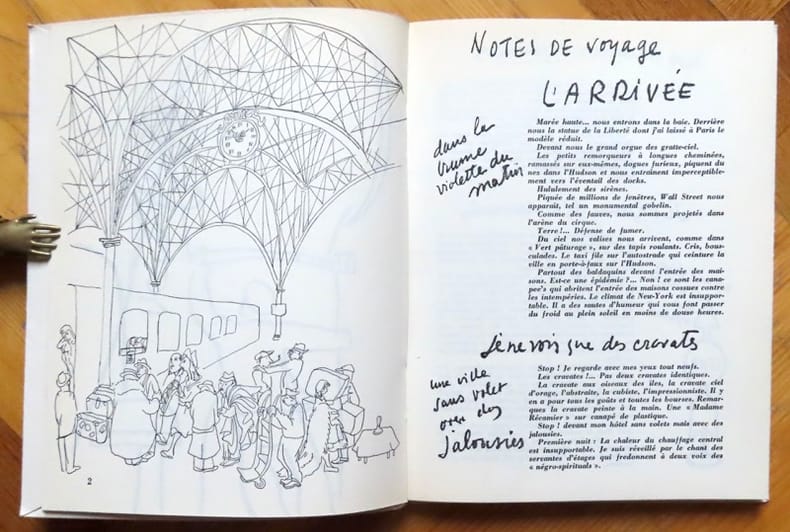 2
NOTES DE voyage
L'ARRIVÉE
dans la
brume
violette du
matin
Marée haute... nous entrons dans la baie. Derrière
nous la statue de la Liberté dont j'ai laissé à Paris le
modèle réduit.
Devant nous le grand orgue des gratte-ciel.
Les petits remorqueurs à longues cheminées,
ramassés sur eux-mêmes, dogues furieux, piquent du
nez dans l'Hudson et nous entraînent imperceptible-
ment vers l'éventail des docks.
Hululement des sirènes.
Piquée de millions de fenêtres, Wall Street nous
apparaît, tel un monumental gobelin.
Comme des fauves, nous sommes projetés dans
l'arène du cirque.
Terre !... Défense de fumer.
Du ciel nos valises nous arrivent, comme dans
« Vert pâturage », sur des tapis roulants. Cris, bous-
culades. Le taxi file sur l'autostrade qui ceinture la
ville en porte-à-faux sur l'Hudson.
Partout des baldaquins devant l'entrée des mai-
sons. Est-ce une épidémie ?... Non ! ce sont les cana-
pee's qui abritent l'entrée des maisons cossues contre
les intempéries. Le climat de New-York est insuppor-
table. Il a des sautes d'humeur qui vous font passer
du froid au plein soleil en moins de douze heures.
Je ne vois que des cravates
une ville
sans volet
avec des
jalousies
Stop ! Je regarde avec mes yeux tout neufs.
Les cravates !... Pas deux cravates identiques.
La cravate aux oiseaux des îles, la cravate ciel
d'orage, l'abstraite, la cubiste, l'impressionniste. Il y
en a pour tous les goûts et toutes les bourses. Remar-
quez la cravate peinte à la main. Une « Madame
Récamier » sur canapé de plastique.
Stop ! devant mon hôtel sans volets mais avec des
jalousies.
Première nuit : La chaleur du chauffage central
est insupportable. Je suis réveillé par le chant des
servantes d'étages qui fredonnent à deux voix des
« négro-spirituals ».